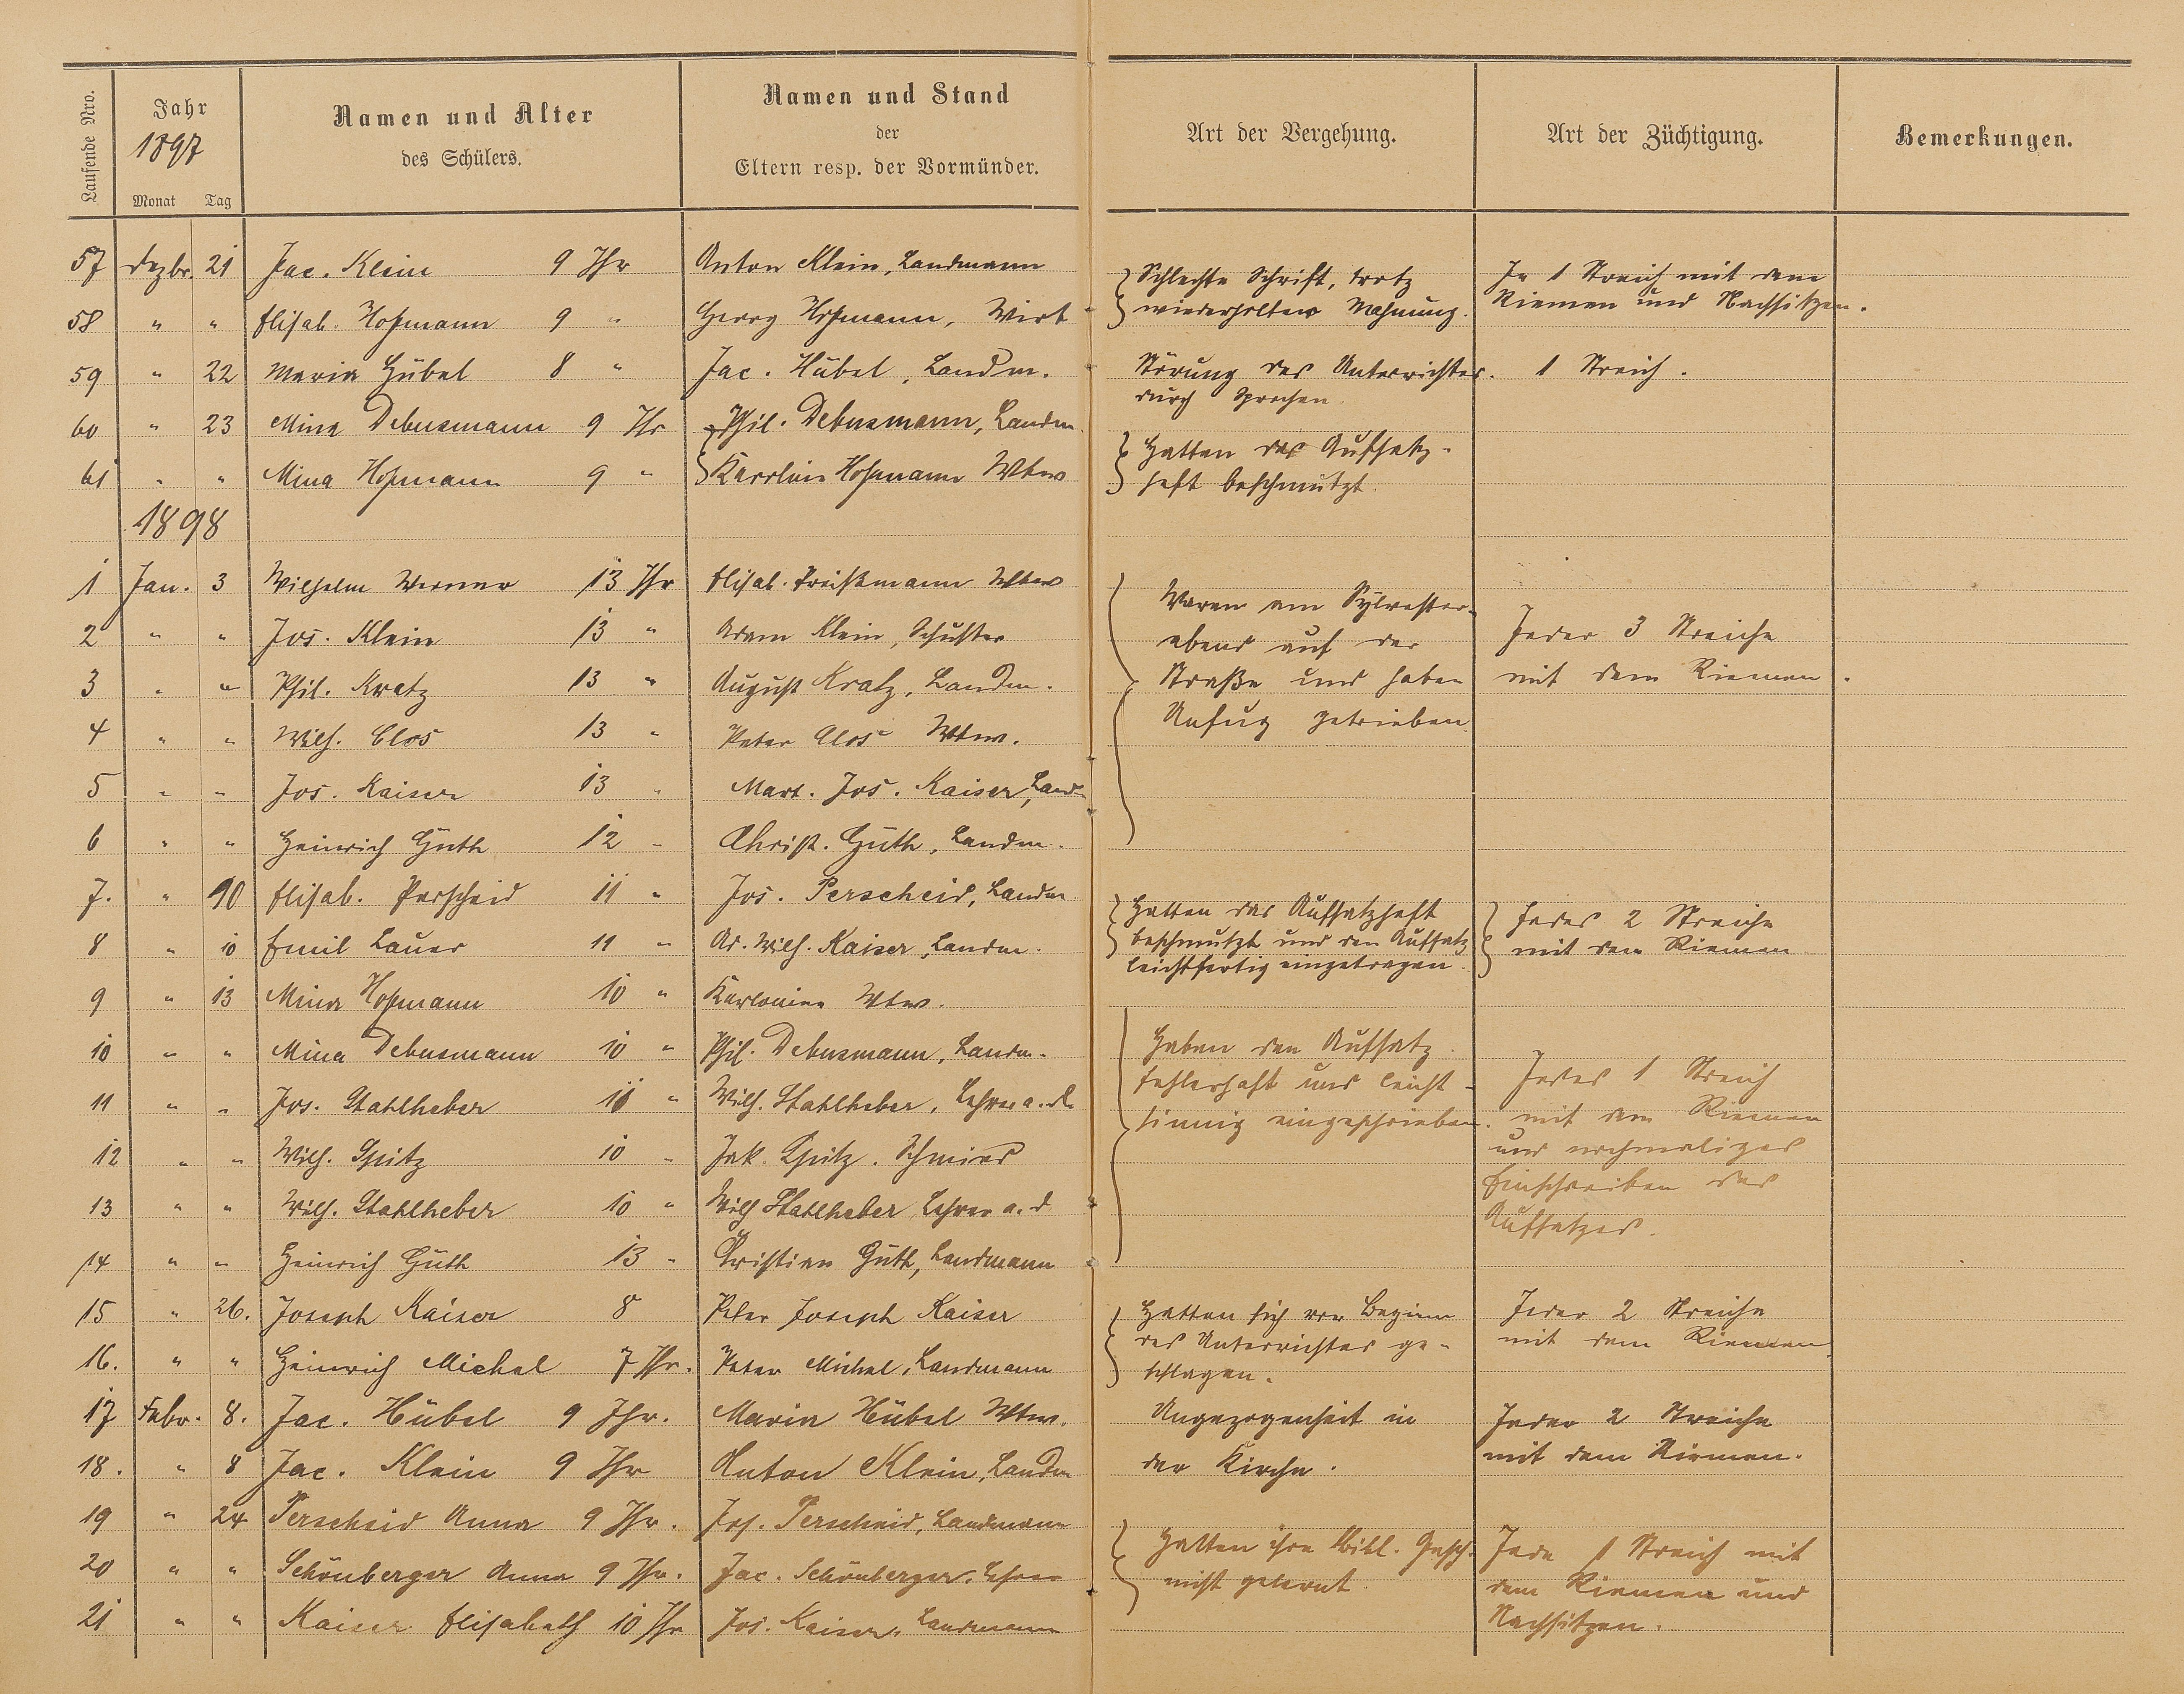 Laufende Nro.
Jahr
1897
Monat Tag
Namen und Alter
des Schülers.
Namen und Stand
der
Eltern resp. der Vormünder.
Art der Vergehung.
Art der Züchtigung.
Bemerkungen.
57 Dezbr. 21 Jac. Klein 9 Jhr Anton Klein, Landmann
58 " " Elisab. Hofmann 9 " Georg Hofmann, Wirt
Schlechte Schrift, trotz
wiederholter Mahnung.
Je 1 Streich mit dem
Riemen und Nachsitzen.
59 " 22 Maria Hübel 8 " Jac. Hübel, Landm.
Störung des Unterrichtes
durch Sprechen.
1 Streich.
60 " 23 Mina Debusmann 9 Jhr Phil. Debusmann, Landm.
61 " " Mina Hofmann 9 " Karoline Hofmann Wtwe
Hatten das Aufsatz-
heft beschmutzt.
1898
1 Jan. 3 Wilhelm Werner 13 Jhr Elisab. Wtwe
2 " " Jos. Klein 13 " Adam Klein, Schuster
3 " " Phil. Kratz 13 " August Kratz, Landm.
4 " " Wilh. Clos 13 " Peter Clos Wtwe.
5 " " Jos. Kaiser 13 " Mart. Jos. Kaiser, Landm
6 " " Heinrich Guth 12 " Christ. Guth, Landm.
Waren am Sylvester-
abend auf der
Straße und haben
Unfug getrieben
Jeder 3 Streiche
mit dem Riemen.
7. " 10 Elisab. Perscheid 11 " Jos. Perscheid, Landm
8 " 10 Emil Lauer 11 " Ad. Wilh. Kaiser, Landm.
Hatten das Aufsatzheft
beschmutzt und den Aufsatz
leichtfertig eingetragen.
Jedes 2 Streiche
mit dem Riemen
9 " 13 Mina Hofmann 10 " Wtwe.
10 " " Mina Debusmann 10 " Phil. Debusmann, Landm.
11 " " Jos. Stahlheber 10 " Wilh. Stahlheber, Lehrer a. d.
12 " " Wilh. Spitz 10 " Jak. Spitz. Schmied
13 " " Wilh. Stahlheber 10 " Wilh Stahlheber Lehrer a. d
14 " " Heinrich Guth 13 " Christian Guth, Landmann
Haben den Aufsatz
fehlerhaft und leicht-
sinnig eingeschrieben.
Jedes 1 Streich
mit dem Riemen
und nochmaliges
Einschreiben des
Aufsatzes.
15 " 26. Joseph Kaiser 8 Peter Joseph Kaiser
16. " " Heinrich Michel 7 Jhr. Peter Michel, Landmann
Hatten sich vor Beginn
des Unterrichtes ge-
schlagen.
Jeder 2 Streiche
mit dem Riemen.
17 Febr. 8. Jac. Hübel 9 Jhr. Maria Hübel Wtwe.
18. " 8 Jac. Klein 9 Jhr Anton Klein, Landm
Ungezogenheit in
der Kirche.
Jeder 2 Streiche
mit dem Riemen.
19 " 24 Perscheid Anna 9 Jhr. Jos. Perscheid, Landmann
20 " " Schönberger Anna 9 Jhr. Jac. Schönberger, Lehrer
21 " " Kaiser Elisabeth 10 Jhr Jos. Kaiser, Landmann
Hatten ihre Bibl. Gesch.
nicht gelernt.
Jede 1 Streich mit
dem Riemen und
Nachsitzen.